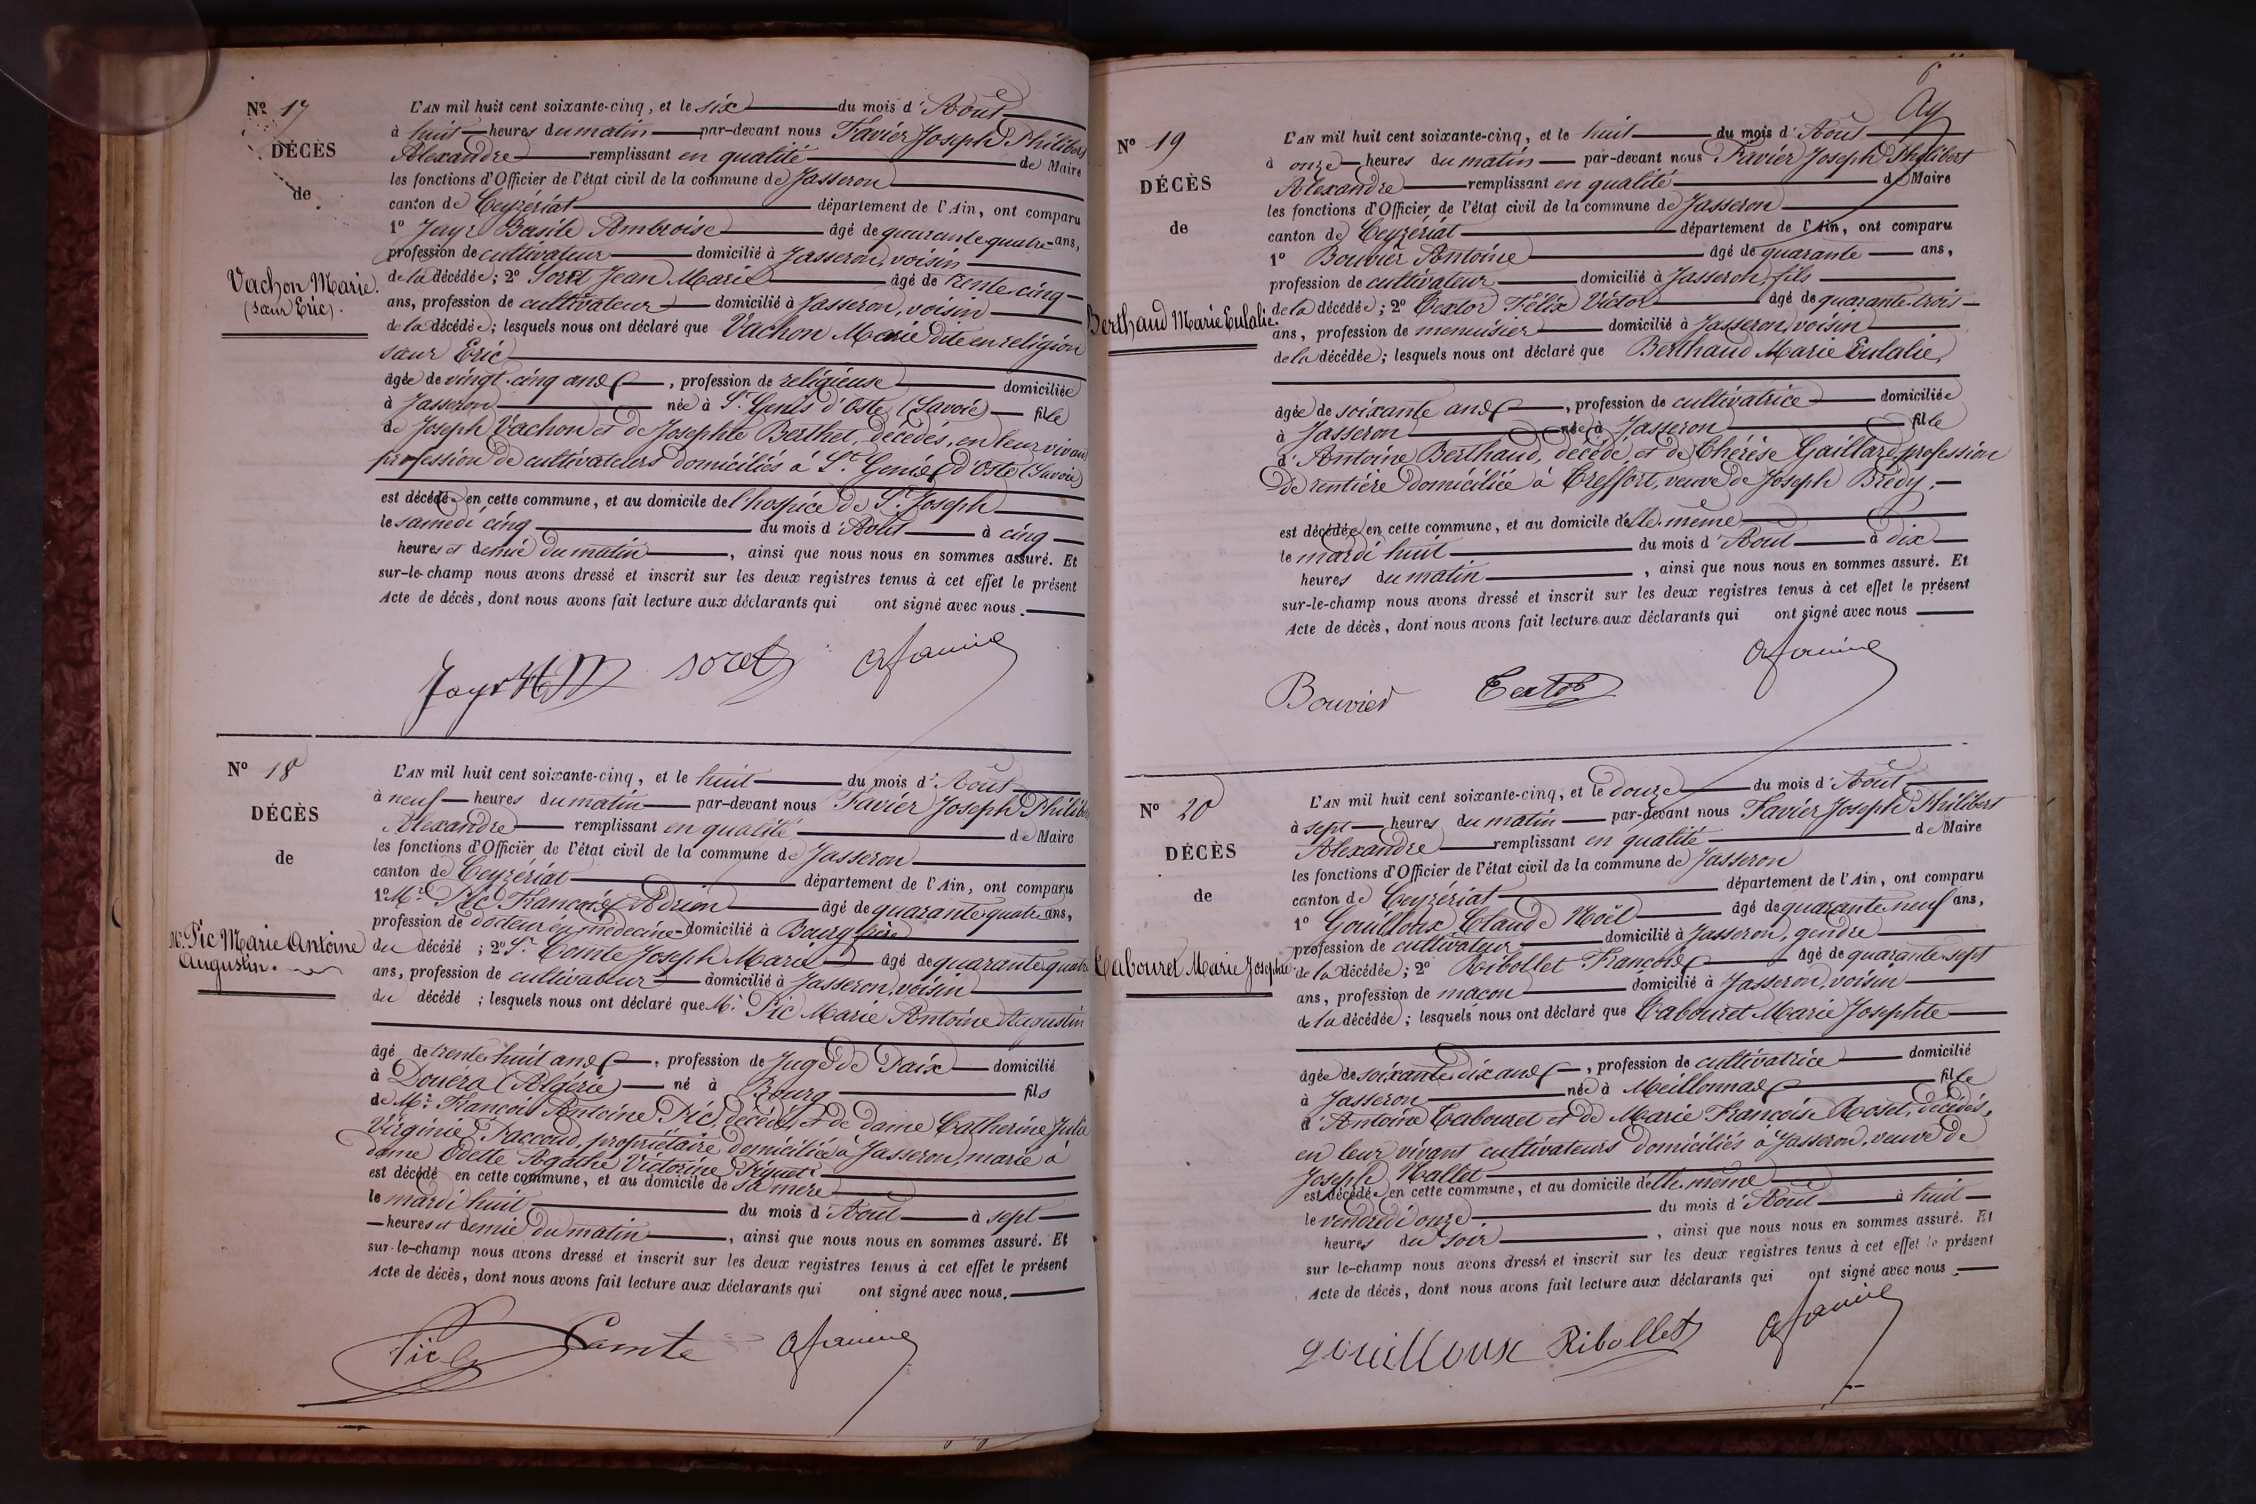 Nº 17
DÉCÈS
de
Vachon Marie.
(sœur Eric).
L'AN mil huit cent soixante-cinq, et le six du mois d'Août
à huit heures du matin par-devant nous Favier Joseph Philibert
Alexandre remplissant en qualité de Maire
les fonctions d'Officier de l'état civil de la commune de Jasseron
canton de Ceyzériat département de l'Ain, ont comparu
1º Jayr Basile Ambroise âgé de quarante quatre ans,
profession de cultivateur domicilié à Jasseron, voisin
de la décédée; 2º Soret Jean Marie âgé de trente cinq
ans, profession de cultivateur domicilié à Jasseron, voisin
de la décédée; lesquels nous ont déclaré que Vachon Marie dite en religion
sœur Eric
âgée de vingt-cinq ans, profession de religieuse domiciliée
à Jasseron née à St Genis d'Oste (Savoie) fille
de Joseph Vachon et de Josephte Berthet, décédés, en leur vivant
profession de cultivateurs domiciliés à St Genis d'Oste (Savoie)
est décédée en cette commune, et au domicile de l'hospice de St Joseph
le samedi cinq du mois d'Août à cinq
heures et demie du matin, ainsi que nous nous en sommes assuré. Et
sur-le-champ nous avons dressé et inscrit sur les deux registres tenus à cet effet le présent
Acte de décès, dont nous avons fait lecture aux déclarants qui ont signé avec nous.
Jayr soret afavier
Nº 18
DÉCÈS
de
Mr Pic Marie Antoine
Augustin.
L'AN mil huit cent soixante-cinq, et le huit du mois d'Août
à neuf heures du matin par-devant nous Favier Joseph Philibert
Alexandre remplissant en qualité de Maire
les fonctions d'Officier de l'état civil de la commune de Jasseron
canton de Ceyzériat département de l'Ain, ont comparu
1º Mr Pic François Adrien âgé de quarante quatre ans,
profession de docteur en médecine domicilié à Bourg frère
du décédé; 2º Sr Comte Joseph Marie âgé de quarante quatre
ans, profession de cultivateur domicilié à Jasseron, voisin
du décédé; lesquels nous ont déclaré que Mr Pic Marie Antoine Augustin
âgé de trente huit ans, profession de Juge de Paix domicilié
à Douéra (Algérie) né à Bourg fils
de Mr François Antoine Pic, décédé, et de dame Catherine Julie
Virginie Faccoud, propriétaire domiciliée à Jasseron, marié à
dame Odette Agathe Victorine Piquet.
est décédé en cette commune, et au domicile de sa mère
le mardi huit du mois d'Août à sept
heures et demie du matin, ainsi que nous nous en sommes assuré. Et
sur-le-champ nous avons dressé et inscrit sur les deux registres tenus à cet effet le présent
Acte de décès, dont nous avons fait lecture aux déclarants qui ont signé avec nous.
Pic Comte afavier
6
Nº 19
DÉCÈS
de
Berthaud Marie Eulalie.
L'AN mil huit cent soixante-cinq, et le huit du mois d'Août
à onze heures du matin par-devant nous Favier Joseph Philibert
Alexandre remplissant en qualité de Maire
les fonctions d'Officier de l'état civil de la commune de Jasseron
canton de Ceyzériat département de l'Ain, ont comparu
1º Bouvier Antoine âgé de quarante ans,
profession de cultivateur domicilié à Jasseron, fils
de la décédée; 2º Textor Félix Victor âgé de quarante-trois
ans, profession de menuisier domicilié à Jasseron, voisin
de la décédée; lesquels nous ont déclaré que Berthaud Marie Eulalie,
âgée de soixante ans, profession de cultivatrice domiciliée
à Jasseron née à Jasseron fille
d'Antoine Berthaud, décédé et de Thérèse Gaillard, profession
de rentière domiciliée à Treffort, veuve de Joseph Brédy,
est décédée en cette commune, et au domicile d'elle-même
le mardi huit du mois d'Août à dix
heures du matin, ainsi que nous nous en sommes assuré. Et
sur-le-champ nous avons dressé et inscrit sur les deux registres tenus à cet effet le présent
Acte de décès, dont nous avons fait lecture aux déclarants qui ont signé avec nous
Bouvier Textor afavier
Nº 20
DÉCÈS
de
Tabouret Marie Josephte
L'AN mil huit cent soixante-cinq, et le douze du mois d'Août
à sept heures du matin par-devant nous Favier Joseph Philibert
Alexandre remplissant en qualité de Maire
les fonctions d'Officier de l'état civil de la commune de Jasseron
canton de Ceyzériat département de l'Ain, ont comparu
1º Gouilloux Claude Noël âgé de quarante neuf ans,
profession de cultivateur domicilié à Jasseron, gendre
de la décédée; 2º Ribollet François âgé de quarante-sept
ans, profession de maçon domicilié à Jasseron, voisin
de la décédée; lesquels nous ont déclaré que Tabouret Marie Josephte
âgée de soixante-dix ans, profession de cultivatrice domicilié
à Jasseron née à Meillonnas fille
d'Antoine Tabouret et de Marie Françoise Rozet, décédés,
en leur vivant cultivateurs domiciliés à Jasseron, veuve de
Joseph Nallet
est décédée en cette commune, et au domicile d'elle-même
le vendredi onze du mois d'Août à huit
heures du soir, ainsi que nous nous en sommes assuré. Et
sur le-champ nous avons dressé et inscrit sur les deux registres tenus à cet effet le présent
Acte de décès, dont nous avons fait lecture aux déclarants qui ont signé avec nous.
gouilloux Ribollet afavier